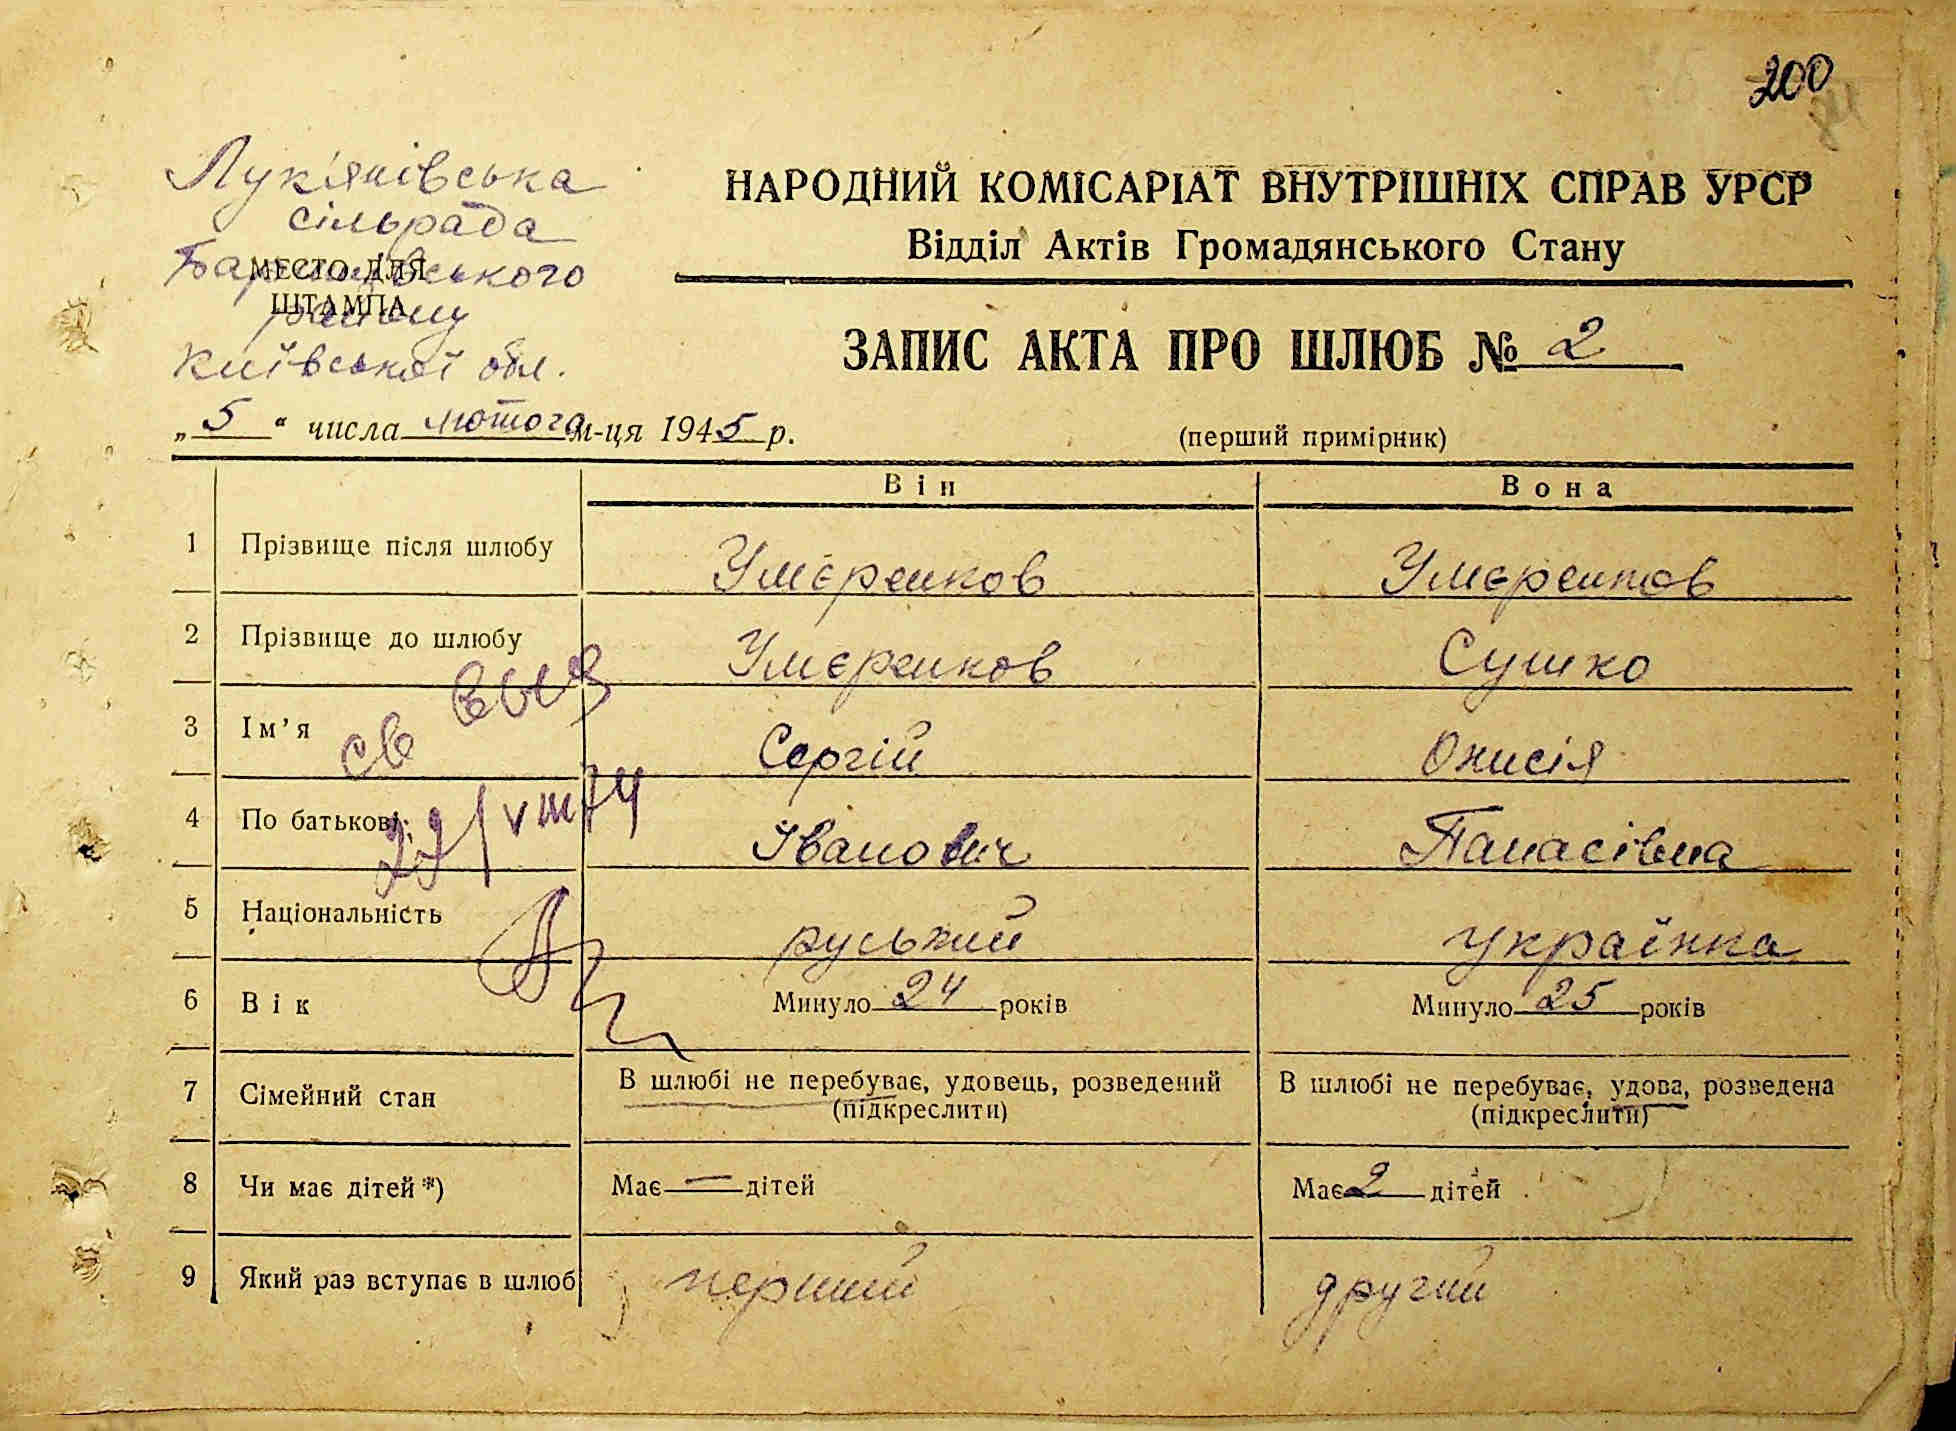 200
Лук'янівська
сільрада
Баришівського
МЕСТО ДЛЯ
ШТАМПА
району
Київської обл.
НАРОДНИЙ КОМІСАРІАТ ВНУТРІШНІХ СПРАВ УРСР
Відділ Актів Громадянського Стану
ЗАПИС АКТА ПРО ШЛЮБ № 2
„5“ числа лютого м-ця 1945 р.
(перший примірник)
Він Вона
1 Прізвище після шлюбу Умєренков Умєренков
2 Прізвище до шлюбу Умєренков Сушко
3 Ім'я Сергій Онисія
св
4 По батькові Іванович Панасівна
27/VIII 74
5 Національність руський українка
6 Вік Минуло 24 років Минуло 25 років
7 Сімейний стан В шлюбі не перебуває, удовець, розведений В шлюбі не перебуває, удова, розведена
(підкреслити) (підкреслити)
8 Чи має дітей*) Має — дітей Має 2 дітей
9 Який раз вступає в шлюб перший другий